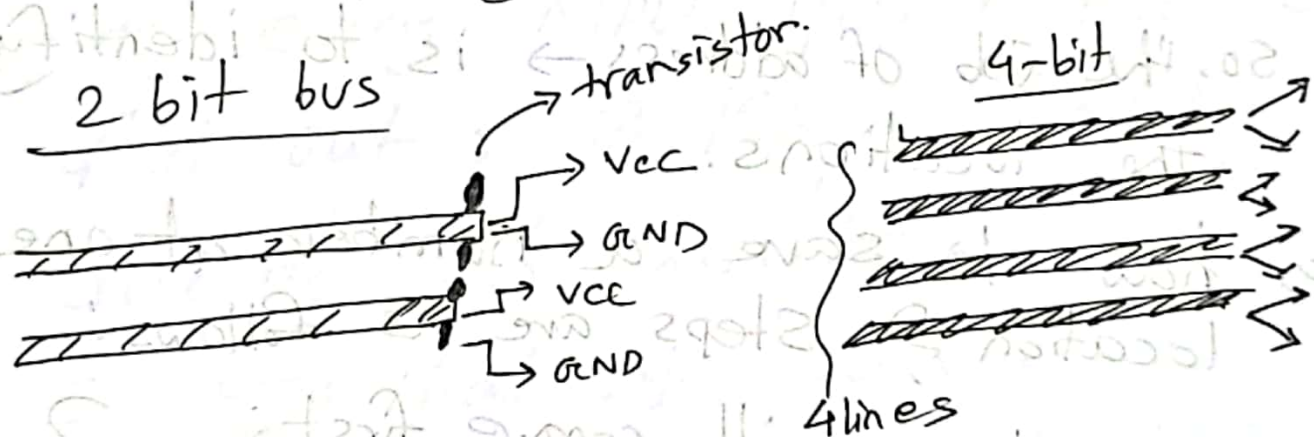 2 bit bus
transistor.
VCC
GND
VCC
GND
4-bit
4 lines